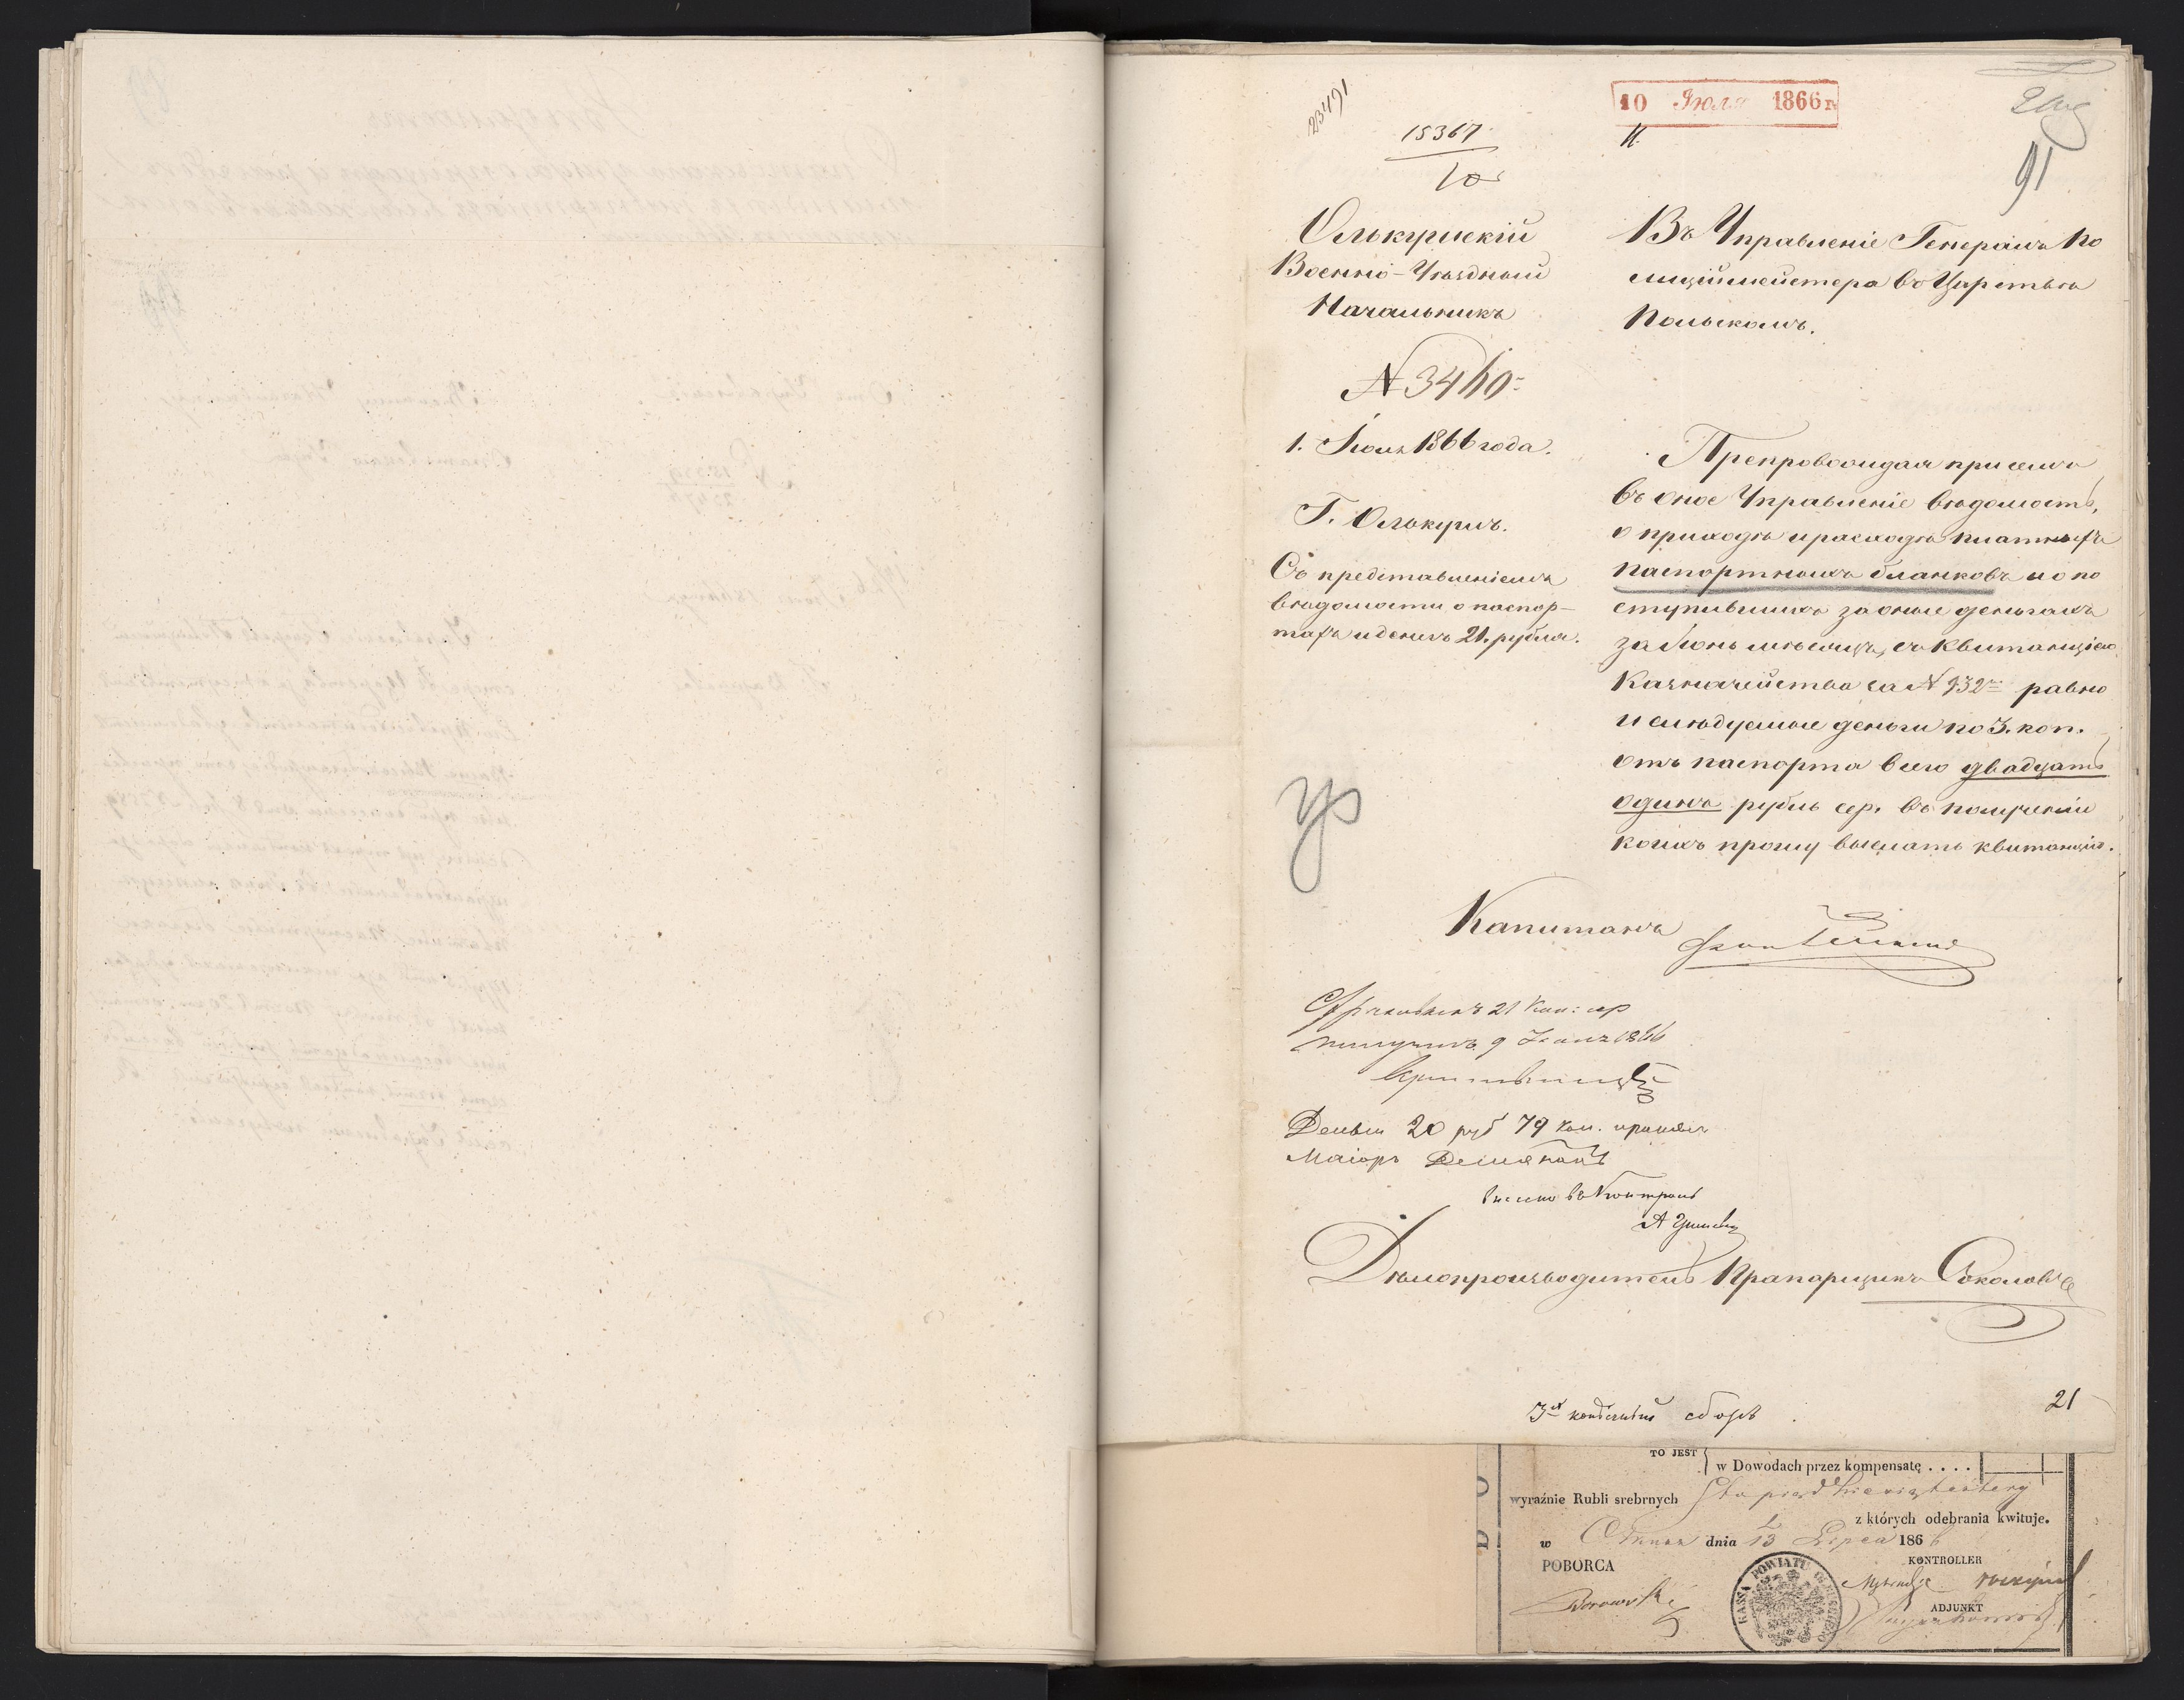 23491
10 Июля 1866 г.
15367
91
Олькушскій
Военно-Уѣздный
Начальникъ
N 3460
1. Іюля 1866 года.
Г. Олькушъ.
Съ представленіемъ
вѣдомости о паспор-
тахъ и денегъ 21. рубля.
Въ Управленіе Генералъ По
лиціймейстера въ Царствѣ
Польскомъ.
Препровождая при семъ
въ оное Управленіе вѣдомость,
о приходѣ и расходѣ платныхъ
паспортныхъ бланковъ и о по
ступившихъ за оные деньгахъ
за Іюнь мѣсяцъ, съ квитанціею
Казначейства за N 932 равно
и слѣдуемые деньги по 3. коп.
отъ паспорта всего двадцать
одинъ рубль сер. въ полученіи
коихъ прошу выслать квитанцію.
Капитанъ
21 Коп: сер
получилъ 9 Іюля 1866
Деньги 20 руб 79 коп. принялъ
Маіоръ
внесено въ Контроль
А
Дѣлопроизводитель Прапорщикъ Соколовъ
3х копѣечный сборъ
21
TO JEST { w Dowodach przez kompensatę . . . .
wyraźnie Rubli srebrnych Sto
z których odebrania kwituje.
w dnia 1/13 Lipca 1866
POBORCA
KONTROLLER
Borowski
ADJUNKT
KASSA POWIATU OLKUSKIEGO